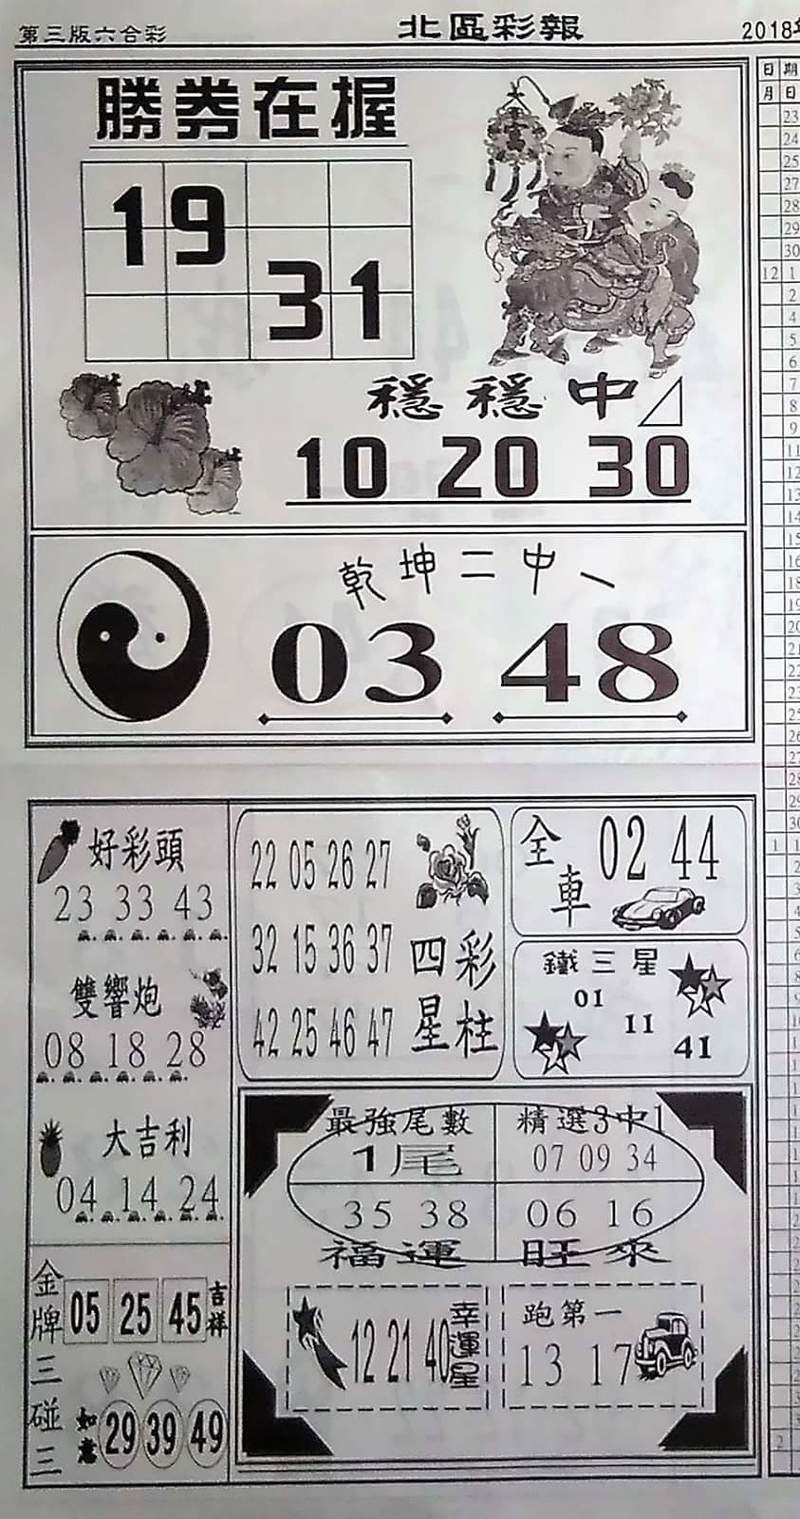 第三版六合彩
北區彩報
2018年
勝券在握
19
31
穩穩中
10 20 30
乾坤二中一
03 48
好彩頭
23 33 43
雙響炮
08 18 28
大吉利
04 14 24
金牌三碰三
05 25 45
吉祥
如意
29 39 49
22 05 26 27
32 15 36 37
42 25 46 47
四星彩柱
全車
02 44
鐵三星
01
11
41
最強尾數
1尾
精選3中1
07 09 34
35 38
06 16
福運旺來
12 21 40
幸運星
跑第一
13 17
日期
月日
23
24
25
27
28
29
30
12 1
2
4
5
6
7
8
9
11
12
13
14
15
16
18
19
20
21
22
23
25
26
27
28
29
30
1 1